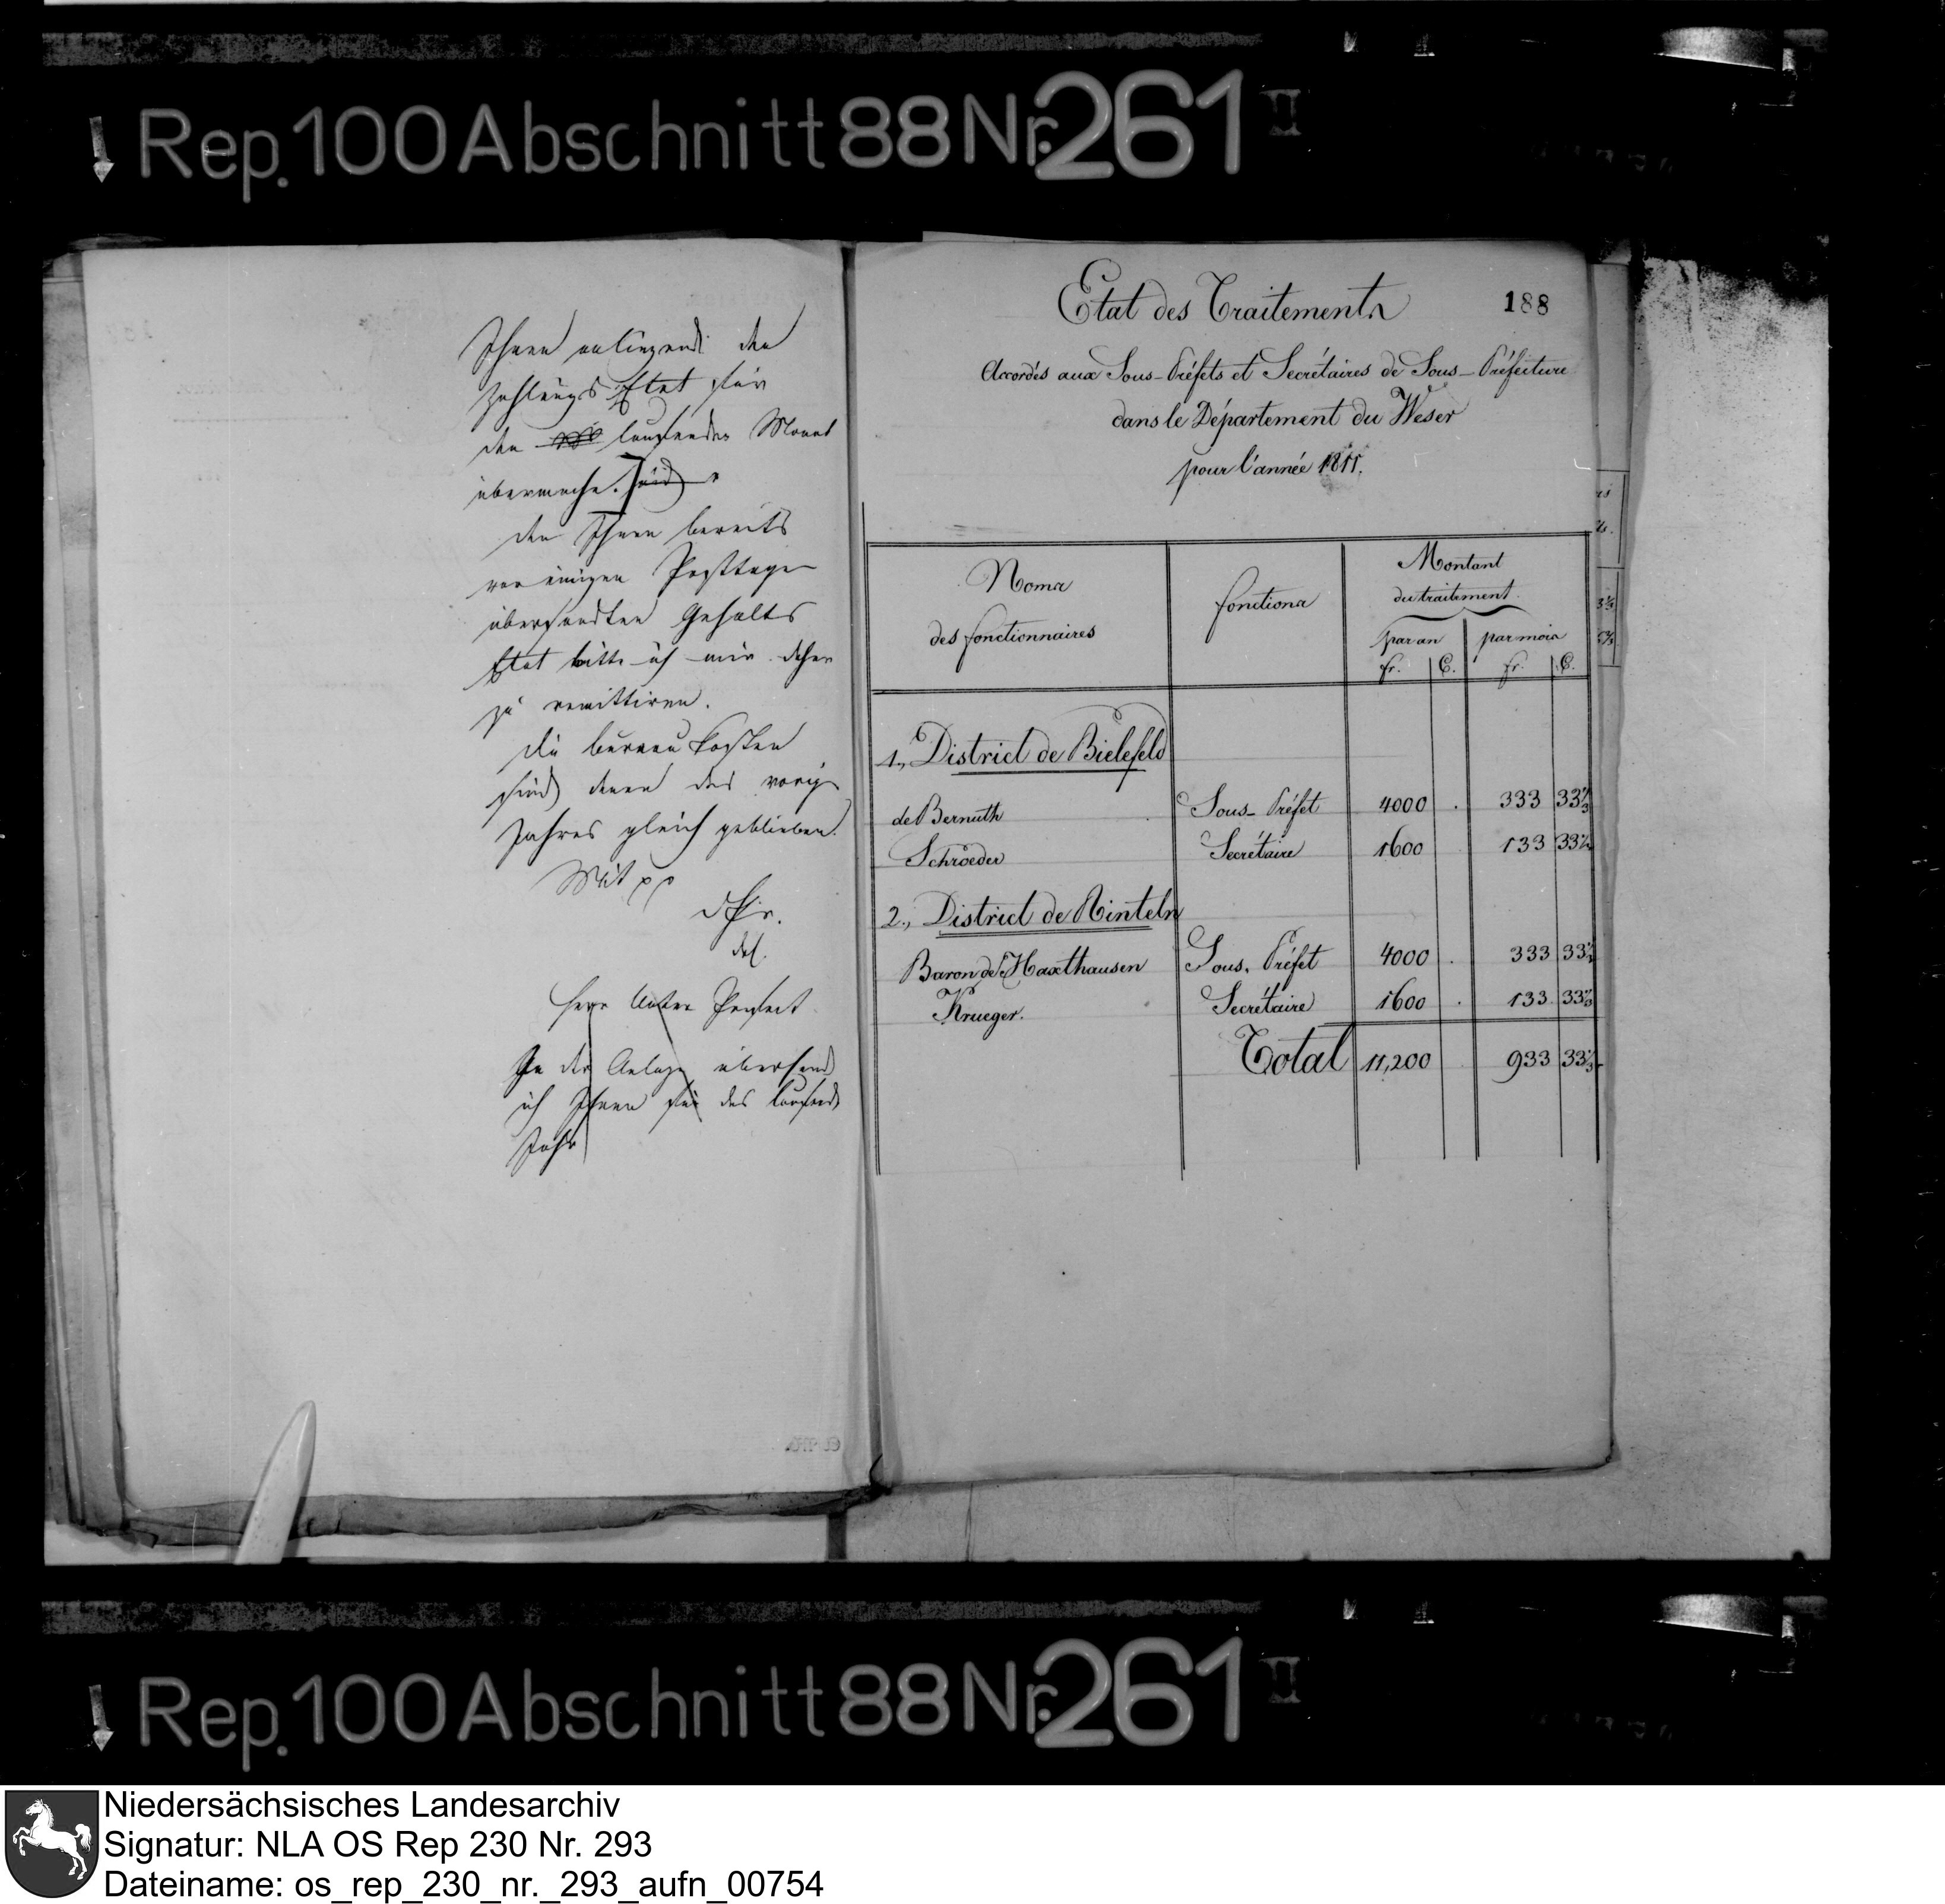 Rep. 100 Abschnitt 88 Nr. 261 II
Ihnen anliegend den
Zahlungs Etat für
den laufenden Monat
übermache.
den Ihnen bereits
vor einigen Posttagen
übersandten Gehalts
Etat bitte ich mir daher
zu remittiren.
Die bureau Kosten
sind denen des vorigen
Jahres gleich geblieben.
Mit
Herr Unter Präfect
In der Anlage übersende
ich Ihnen für das laufende
Jahr
188
Etat des Traitements
Accordés aux Sous-Préfets et Secrétaires de Sous-Préfecture
dans le Département du Weser
pour l'année 1811.
Noms des fonctionnaires | fonctions | Montant du traitement.
par an | par mois
fr. | C. | fr. | C.
1., District de Bielefeld
de Bernuth | Sous-Préfet | 4000 | . | 333 | 33⅓
Schroeder | Secrétaire | 1600 | 133 | 33⅓
2., District de Rinteln
Baron de Haxthausen | Sous-Préfet | 4000 | . | 333 | 33⅓
Krueger. | Secrétaire | 1600 | . | 133 | 33⅓
Total | 11,200 | 933 | 33⅓
Rep. 100 Abschnitt 88 Nr. 261 II
Niedersächsisches Landesarchiv
Signatur: NLA OS Rep 230 Nr. 293
Dateiname: os_rep_230_nr._293_aufn_00754